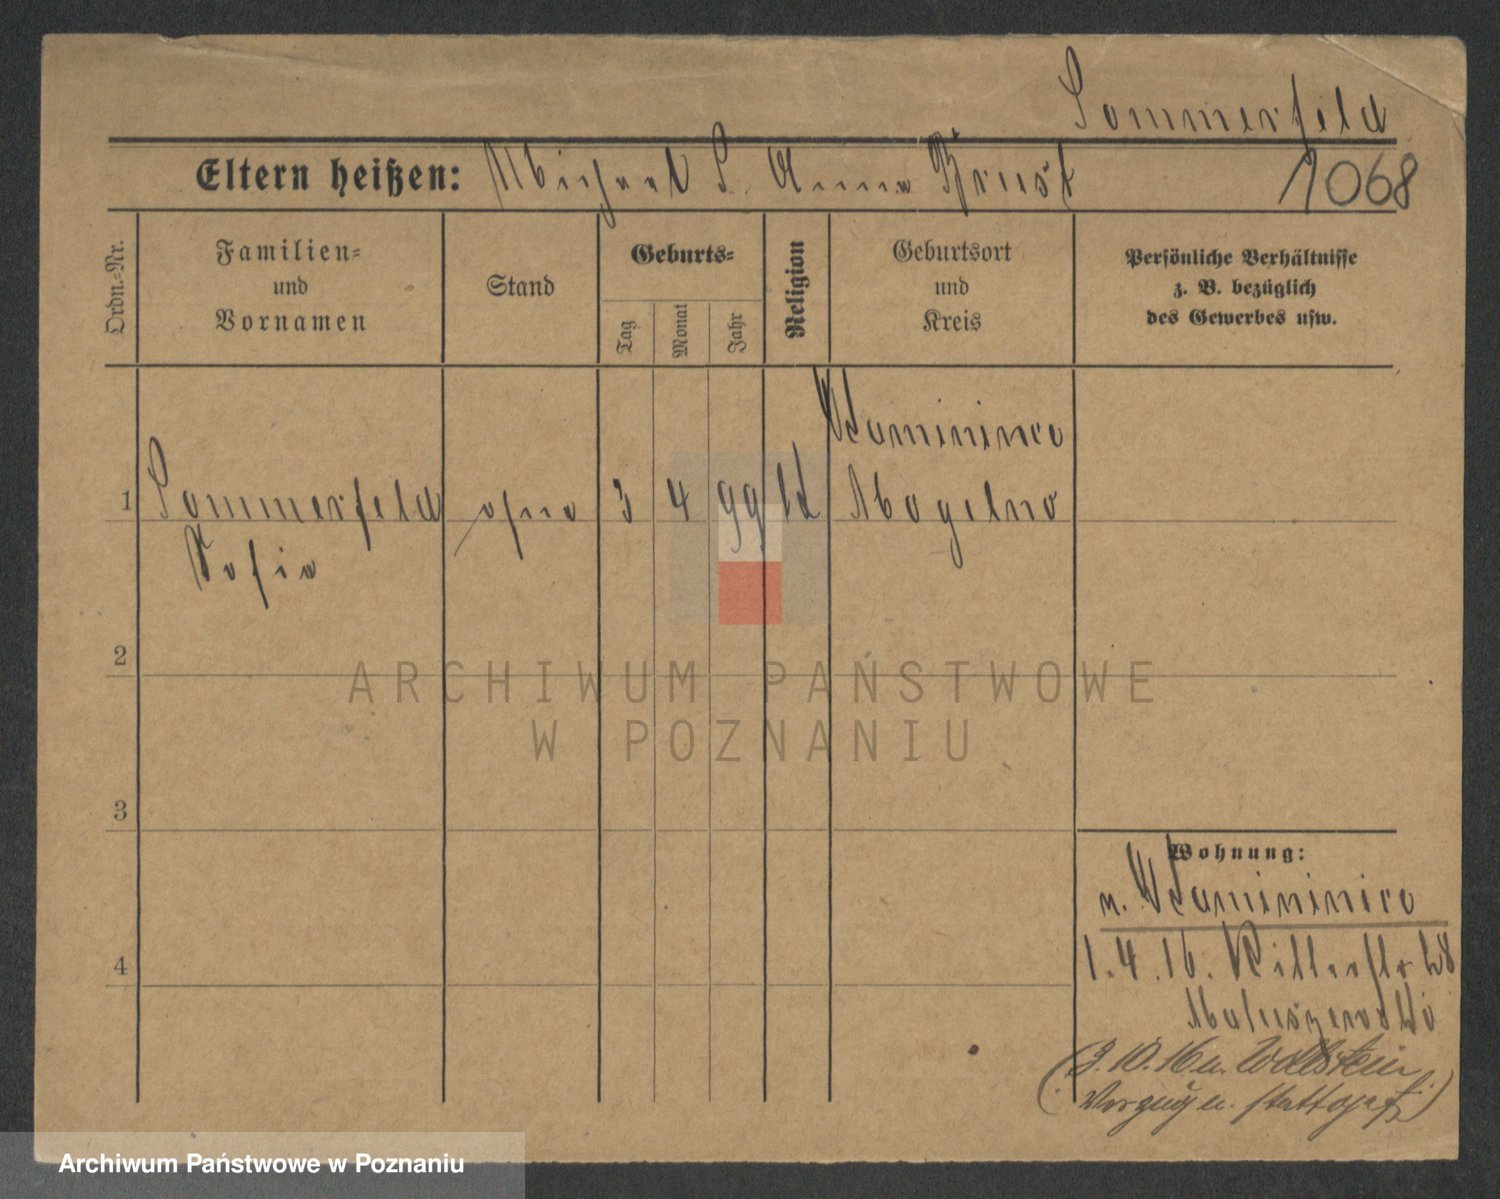 Sommerfeld
Eltern heißen: Michael S. Anna
1068
Ordn.-Nr.
Familien-
und
Vornamen
Stand
Geburts-
Tag
Monat
Jahr
Religion
Geburtsort
und
Kreis
Persönliche Verhältnisse
z. B. bezüglich
des Gewerbes usw.
1
Sommerfeld
Sofia
ohne
3
4
99
Mogelno
2
3
4
Wohnung:
1.4.16. Ritterstr
(3.10.16 n. Wollstein
Verzug n. stattgef.)
ARCHIWUM PAŃSTWOWE
W POZNANIU
Archiwum Państwowe w Poznaniu